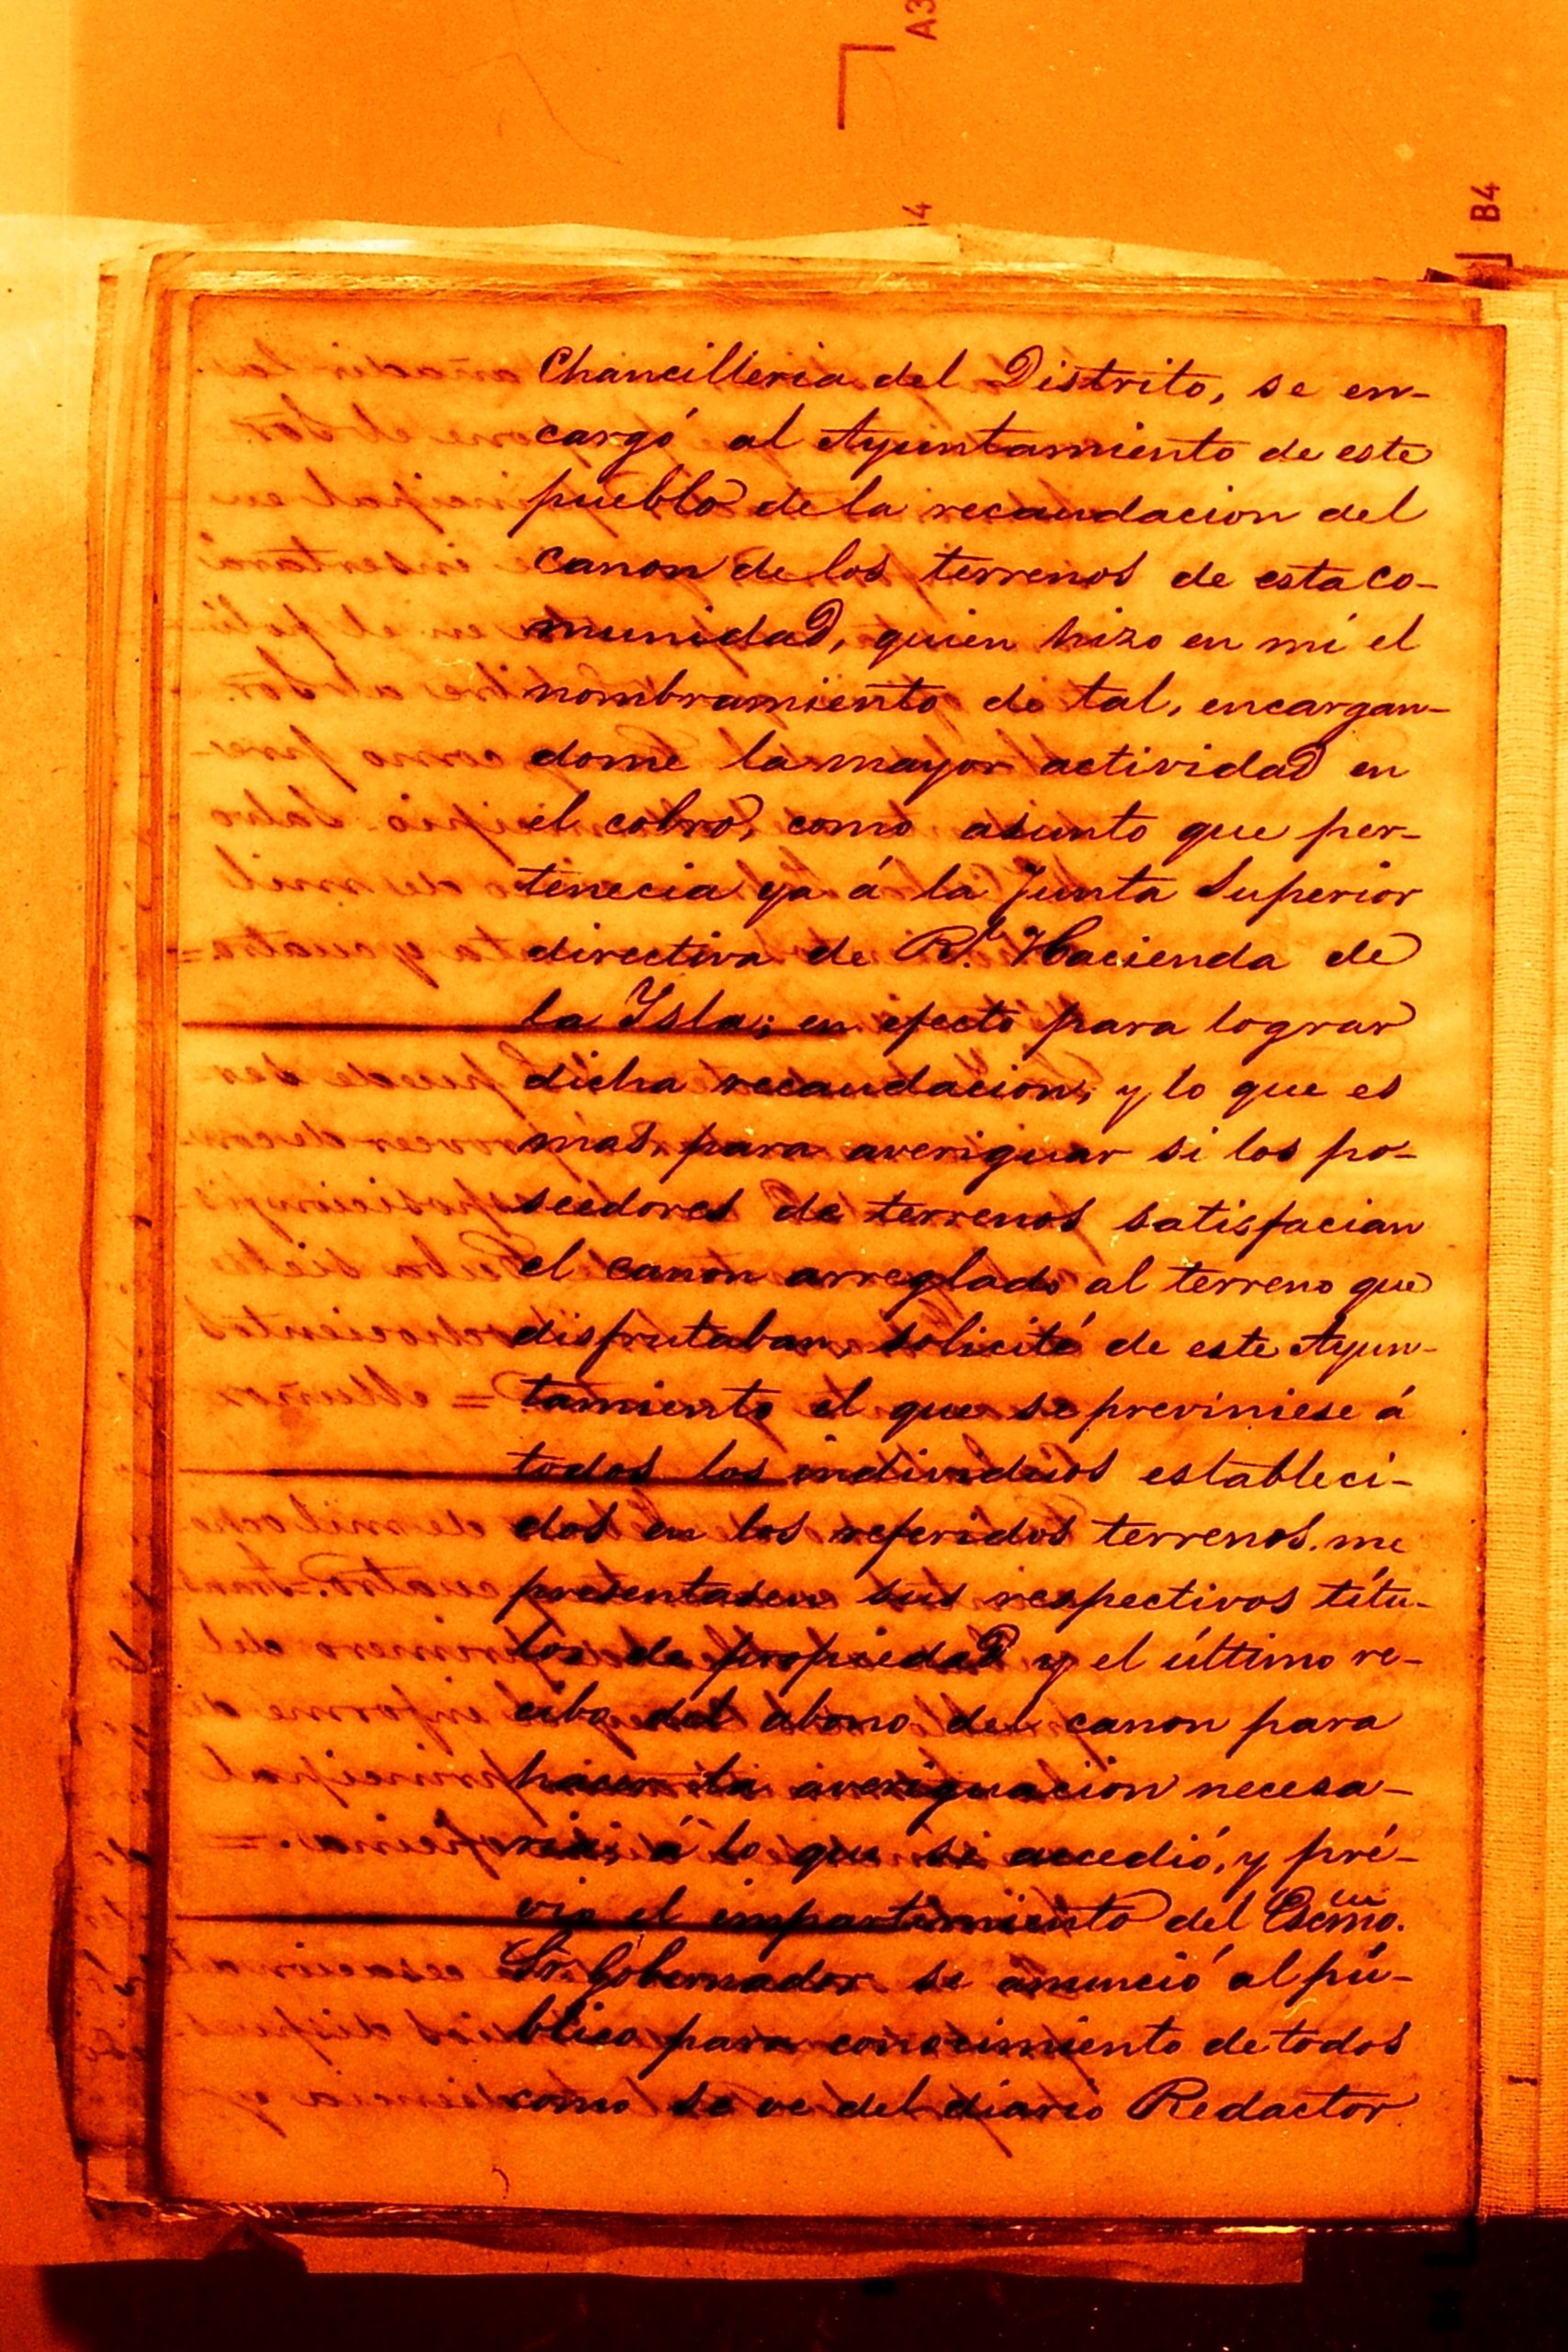 A3
B4
Chancilleria del Distrito, se en-
cargó al Ayuntamiento de este
pueblo de la recaudacion del
canon de los terrenos de esta co-
munidad, quien hizo en mi el
nombramiento de tal, encargan-
dome la mayor actividad en
el cobro, como asunto que per-
tenecia ya á la Junta Superior
directiva de Rl. Hacienda de
la Ysla; en efecto para lograr
dicha recaudacion, y lo que es
mas, para averiguar si los po-
seedores de terrenos satisfacian
el canon arreglado al terreno que
disfrutaban, solicité de este Ayun-
tamiento el que se previniese á
todos los individuos estableci-
dos en los referidos terrenos. me
presentasen sus respectivos títu-
los de propiedad y el último re-
cibo del abono del canon para
hacer la averiguacion necesa-
ria, á lo que se accedió, y pré-
vio el impartimiento del Escmo.
Sr. Gobernador se anunció al pú-
blico para conocimiento de todos
como se ve del diario Redactor